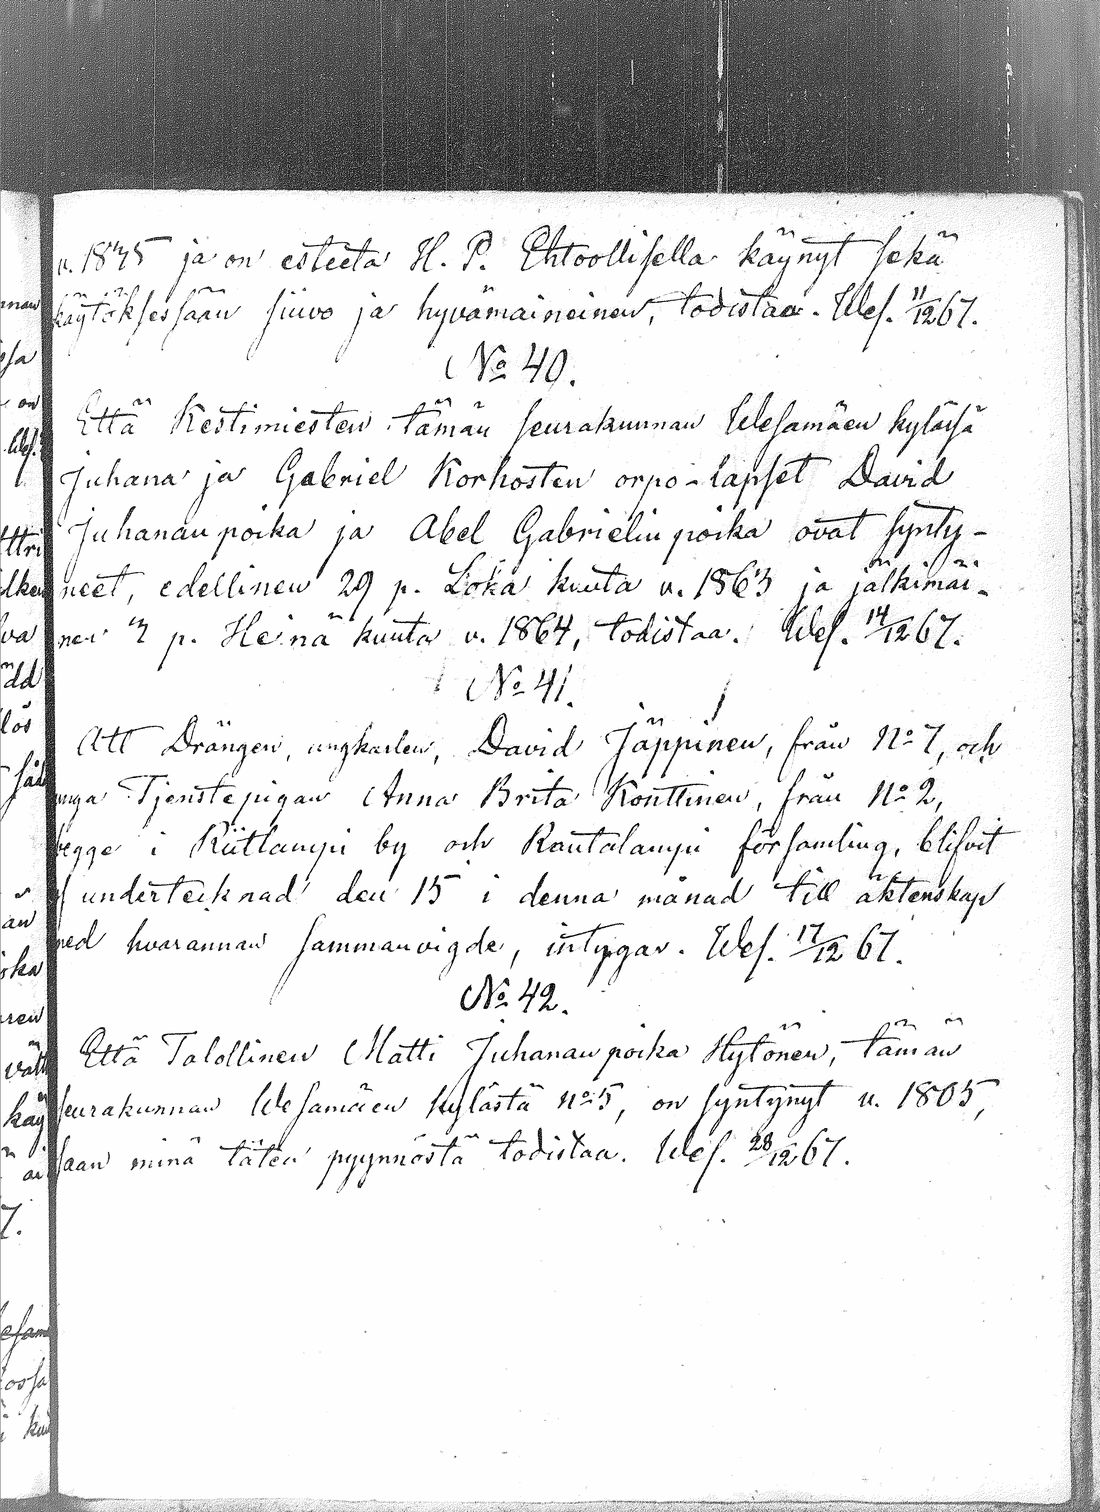 v. 1845 ja on esteetä H. P. Ehtoollisella käynyt sekä
käytöksessään siivo ja hyvämaineinen, todistaa. Wes. 11/12 67.
No 40.
Että Kestimiesten tämän seurakunnan Wesamäen kylässä
Juhana ja Gabriel Korhosten orpo-lapset David
Juhanan poika ja Abel Gabrielin poika ovat synty-
neet, edellinen 29 p. Loka kuuta v. 1863 ja jälkimäi-
nen p. Heinä kuuta v. 1864, todistaa. Wes. 14/12 67.
No 41.
Att Drängen, ungkarlen, David Jäppinen, från No 7, och
unga Tjenstepigan Anna Brita Konttinen, från No 2,
begge i Riitlampi by och Rautalampi församling, blifvit
af undertecknad den 15 i denna månad till äktenskap
med hvarannan sammanvigde, intygar. Wes. 17/12 67.
No 42.
Että Talollinen Matti Juhanan poika Hytönen, tämän
seurakunnan Wesamäen kylästä No 5, on syntynyt v. 1805,
saan minä täten pyynnöstä todistaa. Wes. 28/12 67.